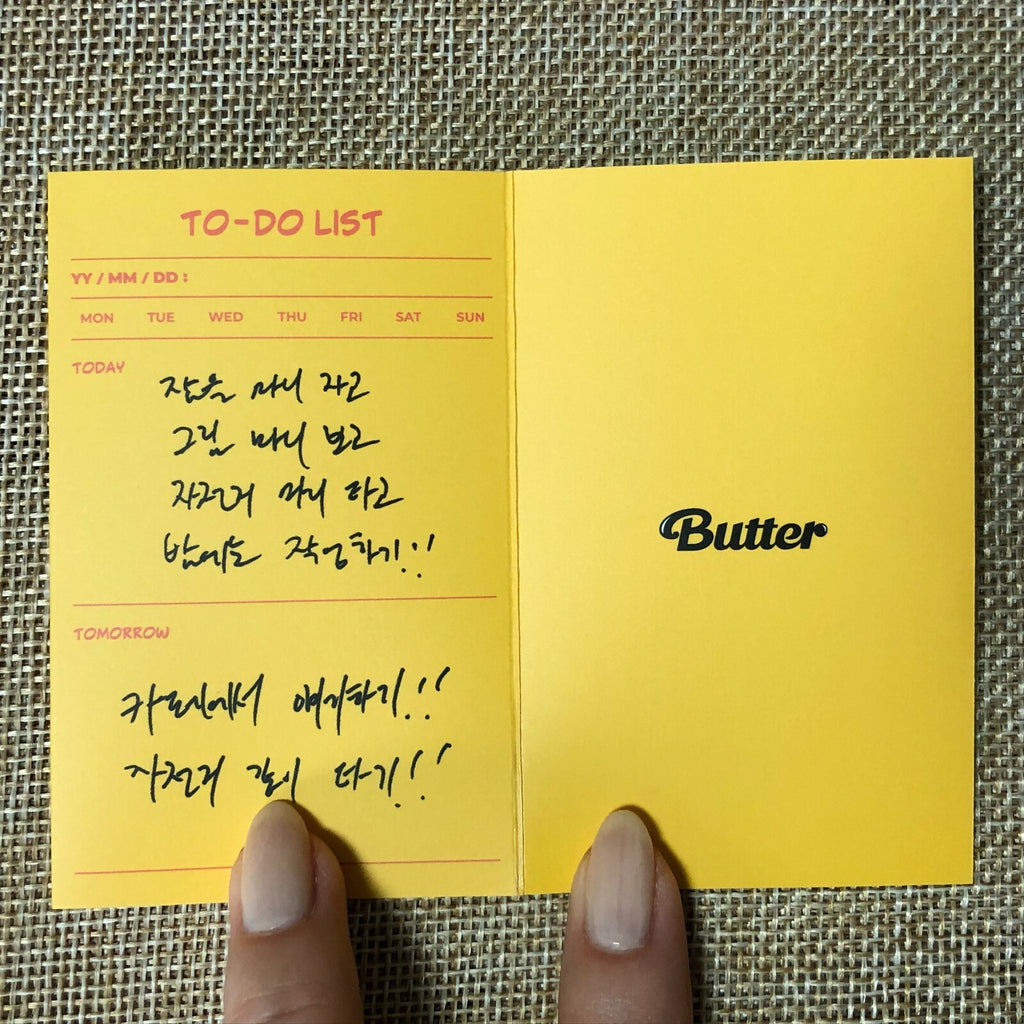 TO-DO LIST
YY / MM / DD :
MON TUE WED THU FRI SAT SUN
TODAY
잠을 마니 자고
그림 마니 보고
자전거 마니 타고
밤에는 작업하기!!
TOMORROW
카토신에서 얘기하기!!
자전거 같이 타기!!
Butter